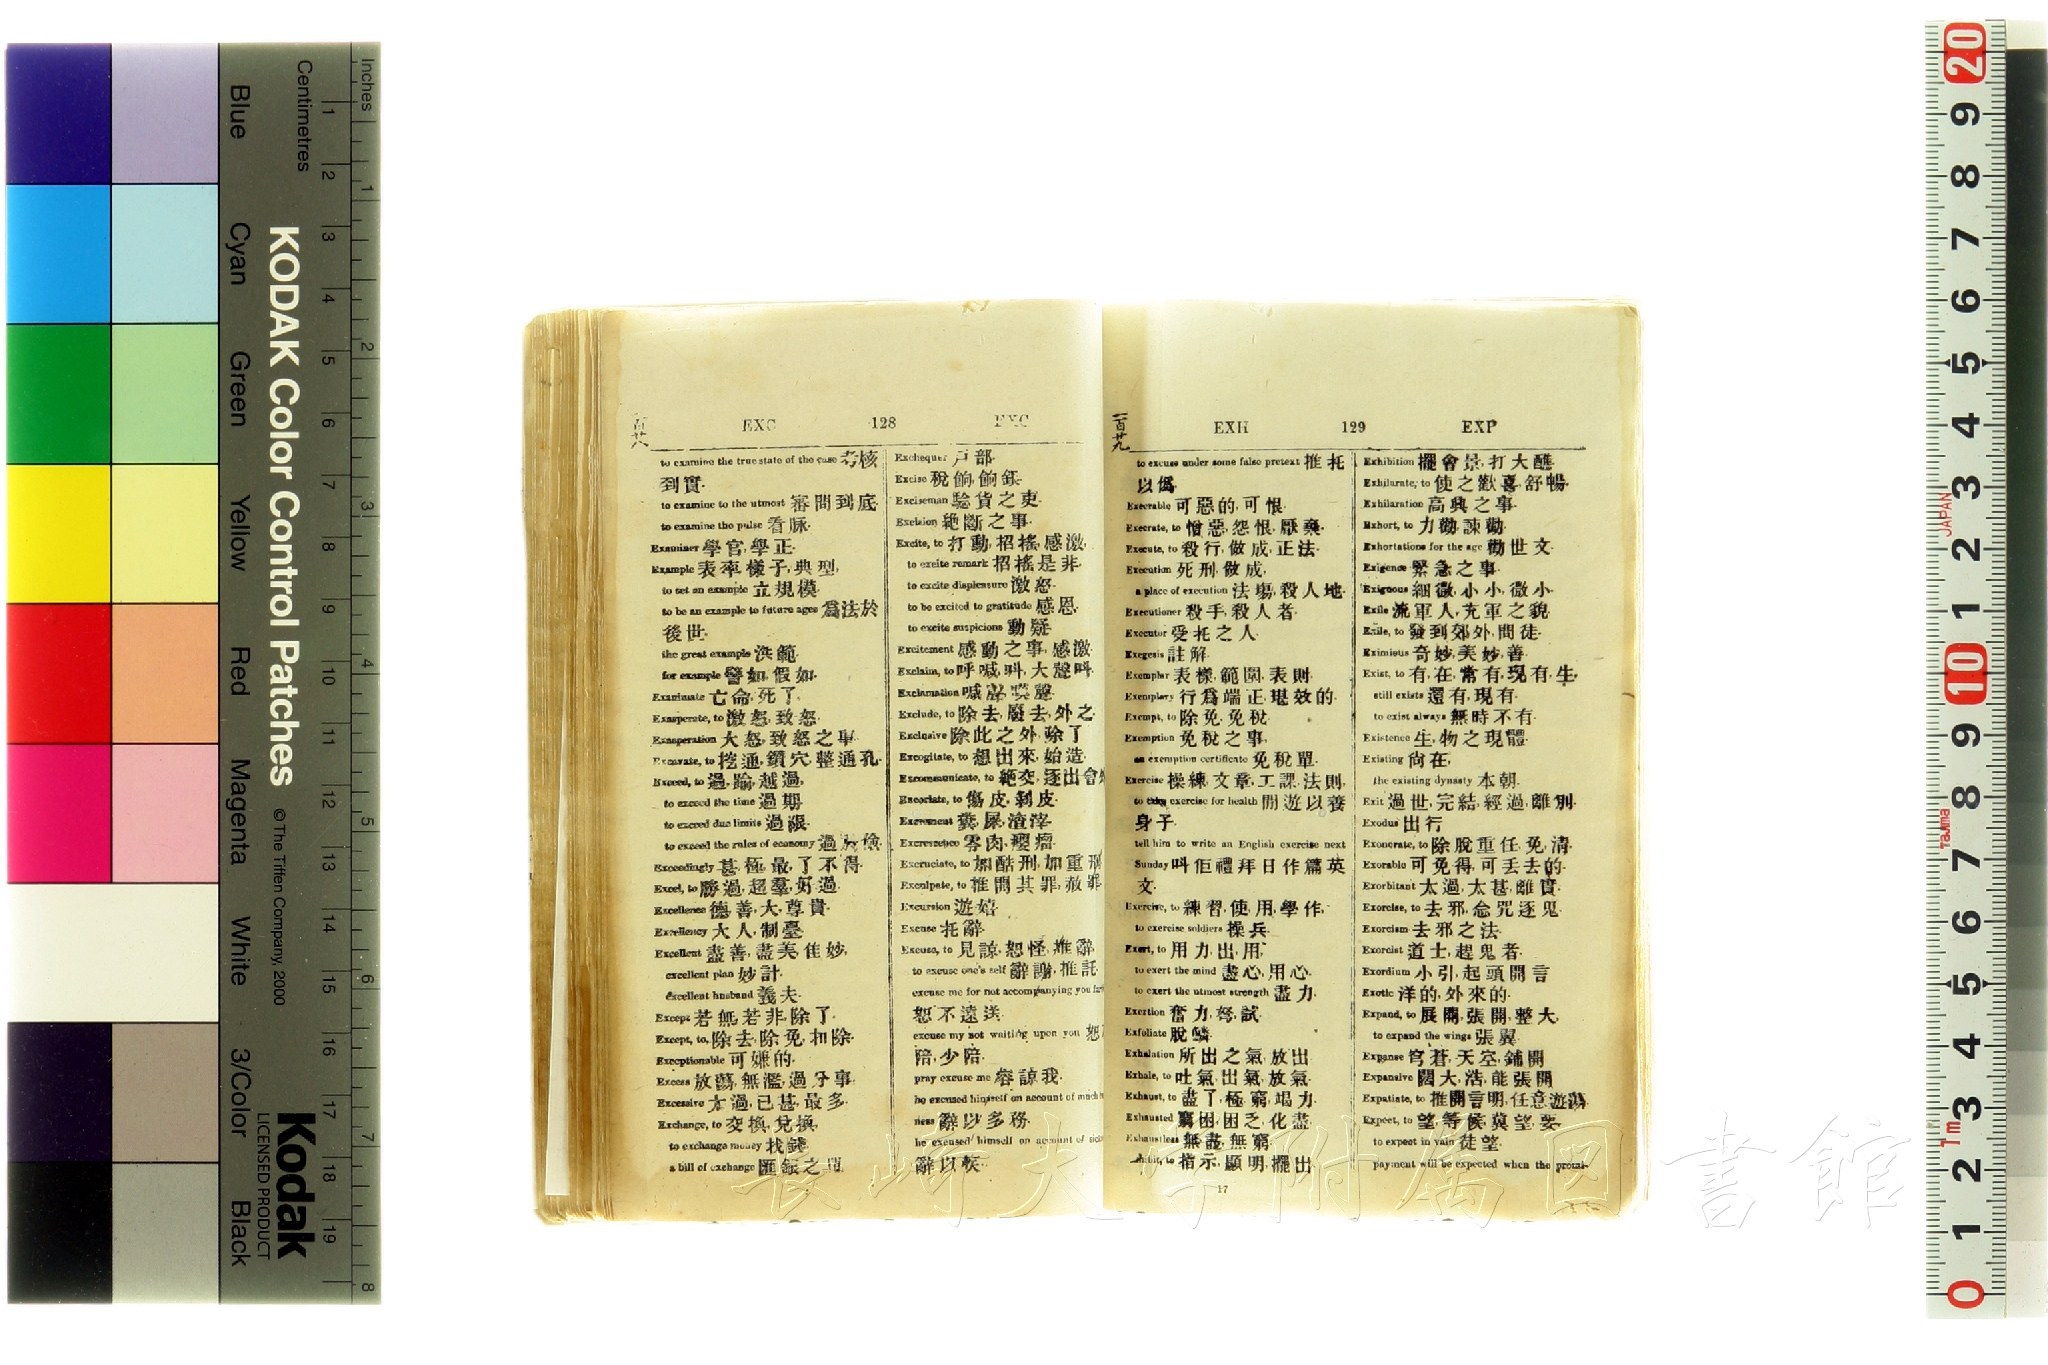 Inches
Centimetres
KODAK Color Control Patches
© The Tiffen Company, 2000
Kodak
LICENSED PRODUCT
Blue
Cyan
Green
Yellow
Red
Magenta
White
3/Color
Black
EXC 128 EXC
to examine the true state of the case 考核
到實
to examine to the utmost 審問到底
to examine the pulse 看脉
Examiner 學官, 學正
Example 表率, 樣子, 典型,
to set an example 立規模
to be an example to future ages 爲法於
後世
the great example 洪範
for example 譬如, 假如
Exanimate 亡命, 死了
Exasperate, to 激怒, 致怒
Exasperation 大怒, 致怒之事
Excavate, to 挖通, 鑽穴, 整通孔
Exceed, to 過, 踰, 越過,
to exceed the time 過期
to exceed due limits 過限
to exceed the rules of economy
Exceedingly 甚, 極, 最, 了不得
Excel, to 勝過, 超羣, 好過
Excellence 德, 善, 大, 尊貴
Excellency 大人, 制臺
Excellent 盡善, 盡美, 佳妙,
excellent plan 妙計
excellent husband 義夫
Except 若無, 若非, 除了
Except, to, 除去, 除免, 扣除
Exceptionable 可嫌的
Excess 放蕩, 無濫, 過分事
Excessive 太過, 已甚, 最多
Exchange, to 交換, 兌換,
to exchange money 找錢
a bill of exchange 匯銀之單
Exchequer 戶部
Excise 稅餉, 餉銀
Exciseman 驗貨之吏
Excision 絶斷之事
Excite, to 打動, 招搖, 感激,
to excite remark 招搖是非
to excite displeasure 激怒
to be excited to gratitude 感恩
to excite suspicions 動疑
Excitement 感動之事, 感激
Exclaim, to 呼喊, 叫, 大聲叫
Exclamation 喊
Exclude, to 除去, 廢去, 外之
Exclusive 除此之外, 除了
Excogitate, to 想出來, 始造
Excommunicate, to 絶交, 逐出會
Excoriate, to 傷皮, 剥皮
Excrement 糞, 屎, 渣滓
Excrescence 零肉, 癭瘤
Excruciate, to 加酷刑, 加重
Exculpate, to 推開其罪, 赦罪
Excursion 遊嬉
Excuse 托辭
Excuse, to 見諒, 恕, 怪, 推辭
to excuse one's self 辭謝, 推託
excuse me for not accompanying you
恕不遠送
excuse my not waiting upon you 恕
陪, 少陪
pray excuse me 容諒我
he excused himself on account of
ness 辭以多務
he excused himself on account of
辭以疾
一百廿九
EXH 129 EXP
to excuse under some false pretext 推托
以僞
Execrable 可惡的, 可恨
Execrate, to 憎惡, 怨恨, 厭棄
Execute, to 殺, 行, 做成, 正法
Execution 死刑, 做成,
a place of execution 法塲, 殺人地
Executioner 殺手, 殺人者
Executor 受托之人
Exegesis 註解
Exemplar 表樣, 範圍, 表則
Exemplary 行爲端正, 堪效的
Exempt, to 除免, 免稅
Exemption 免稅之事
an exemption certificate 免稅單
Exercise 操練, 文章, 工課, 法則,
to take exercise for health 閒遊以養
身子
tell him to write an English exercise next
Sunday 叫佢禮拜日作篇英
文
Exercise, to 練習, 使用, 學作,
to exercise soldiers 操兵
Exert, to 用力, 出, 用,
to exert the mind 盡心, 用心
to exert the utmost strength 盡力
Exertion 奮力, 努, 試
Exfoliate 脫鱗
Exhalation 所出之氣, 放出
Exhale, to 吐氣, 出氣, 放氣
Exhaust, to 盡了, 極, 窮, 竭力
Exhausted 窮困, 困乏, 化盡
Exhaustless 無盡, 無窮
Exhibit, to 指示, 顯明, 擺出
17
Exhibition 擺會景, 打大醮
Exhilarate, to 使之歡喜, 舒暢
Exhilaration 高興之事
Exhort, to 力勸, 諫勸
Exhortations for the age 勸世文
Exigence 緊急之事
Exiguous 細微, 小小, 微小
Exile 流軍人, 充軍之貌
Exile, to 發到郊外, 問徒
Eximious 奇妙, 美妙, 善
Exist, to 有, 在, 常有, 現有, 生
still exists 還有, 現有
to exist always 無時不有
Existence 生, 物之現體
Existing 尚在,
the existing dynasty 本朝
Exit 過世, 完結, 經過, 離別
Exodus 出行
Exonerate, to 除脫重任, 免, 清
Exorable 可免得, 可丟去的
Exorbitant 太過, 太甚, 離實
Exorcise, to 去邪, 念咒逐鬼
Exorcism 去邪之法
Exorcist 道士, 趕鬼者
Exordium 小引, 起頭開言
Exotic 洋的, 外來的
Expand, to 展開, 張開, 整大,
to expand the wings 張翼
Expanse 穹蒼, 天空, 鋪開
Expansive 闊大, 浩, 能張開
Expatiate, to 推開言明, 任意遊蕩
Expect, to 望, 等候, 冀望, 要
to expect in vain 徒望
payment will be expected when the promi-
長崎大学附属図書館
JAPAN
Tajima
1m